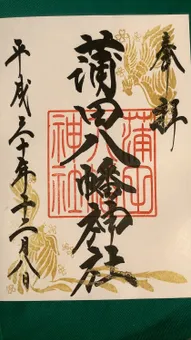 奉拝
蒲田八幡神社
蒲田八幡神社
平成三十年十二月八日